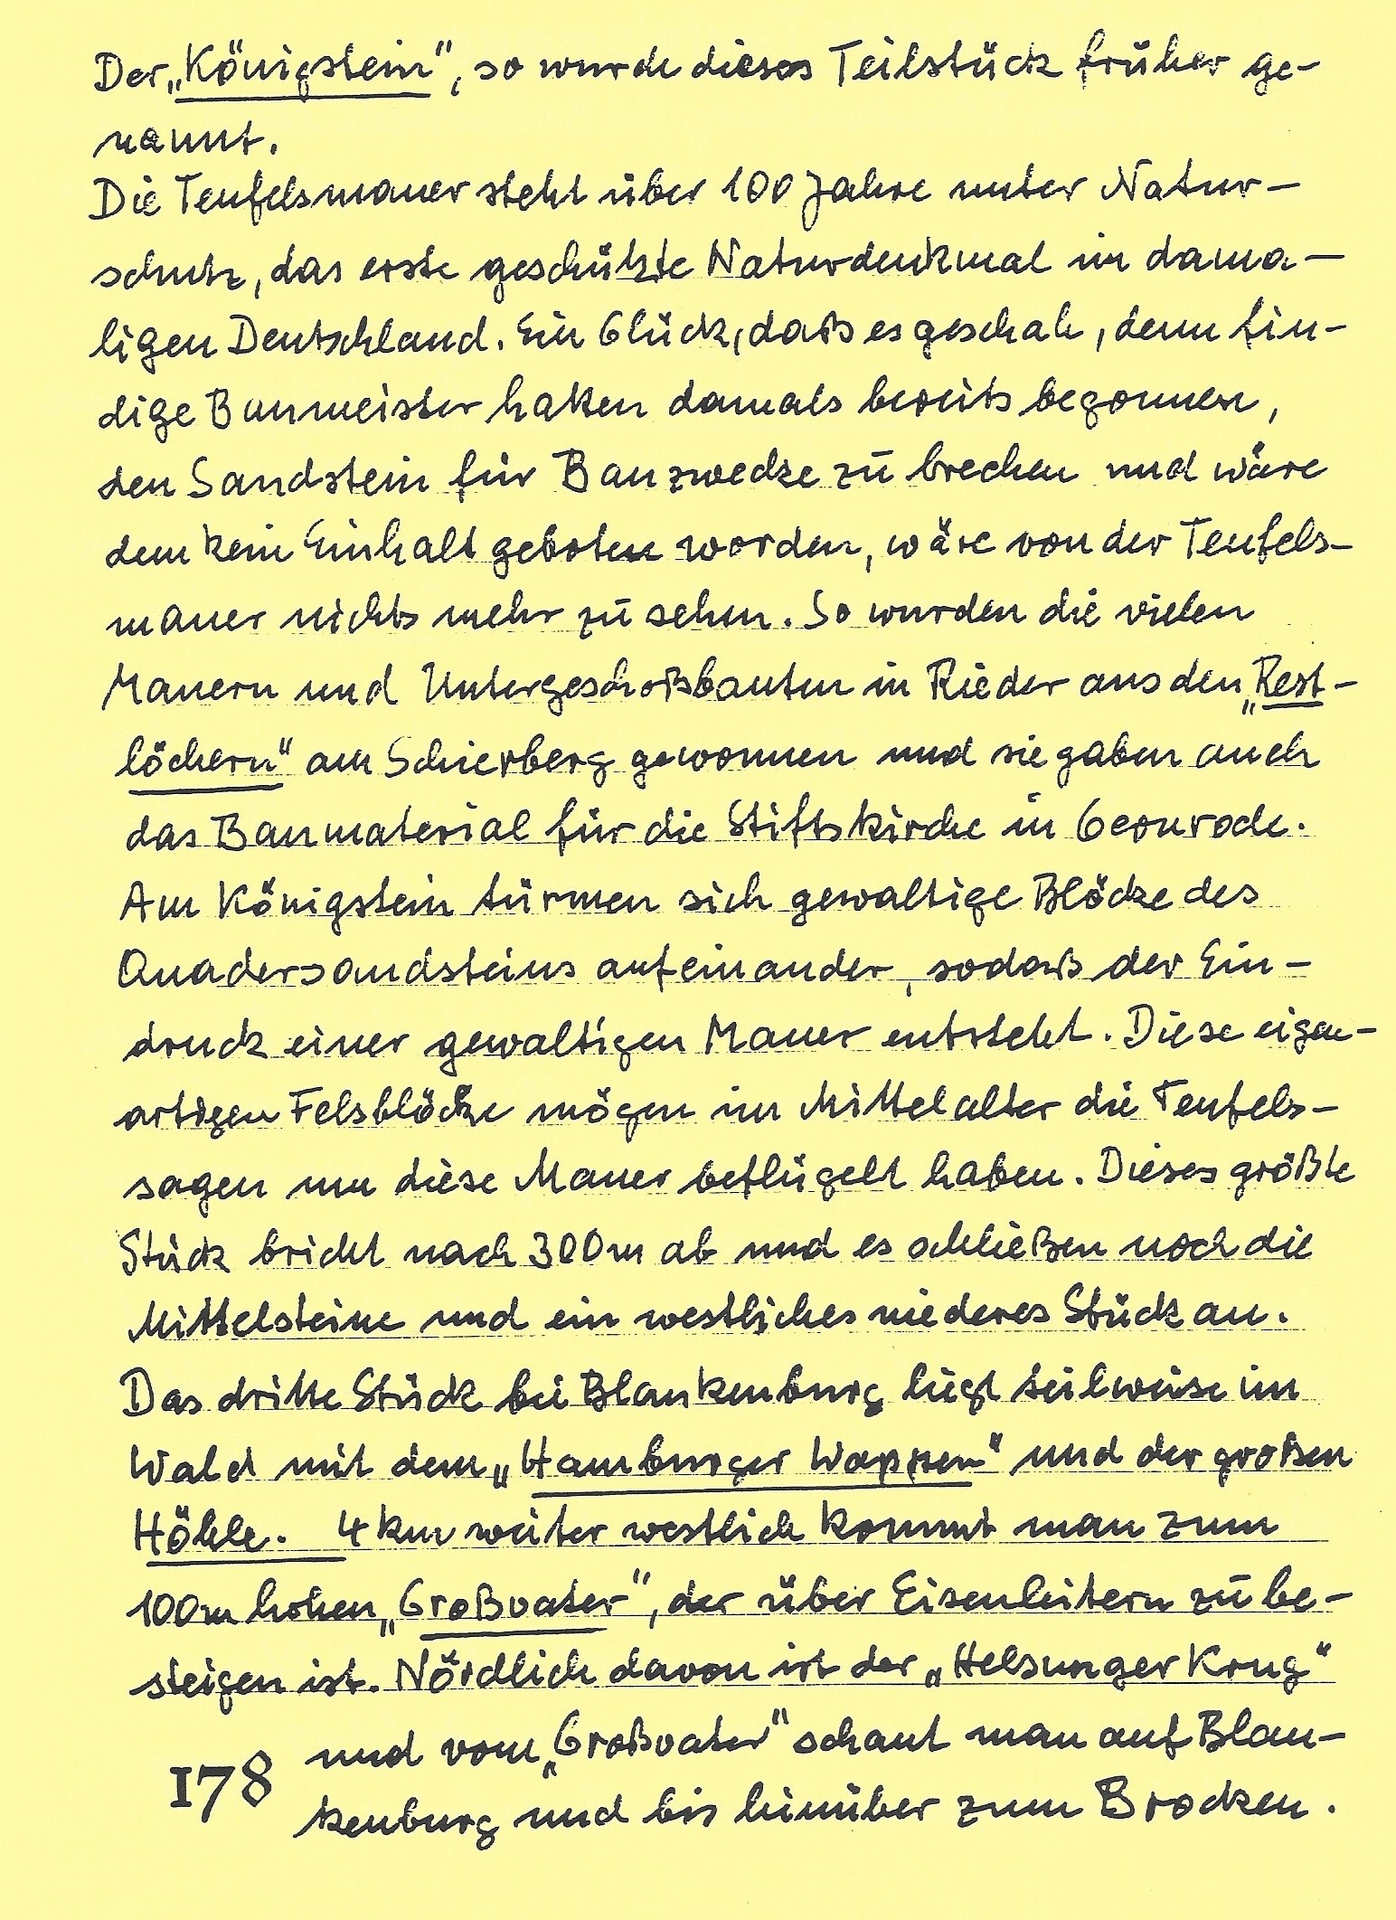 Der „Königstein", so wurde dieses Teilstück früher ge-
nannt.
Die Teufelsmauer steht über 100 Jahre unter Natur-
schutz, das erste geschützte Naturdenkmal im dama-
ligen Deutschland. Ein Glück, daß es geschah, denn fin-
dige Baumeister hatten damals bereits begonnen,
den Sandstein für Bauzwecke zu brechen und wäre
dem kein Einhalt geboten worden, wäre von der Teufels-
mauer nichts mehr zu sehen. So wurden die vielen
Mauern und Untergeschoßbauten in Rieder aus den „Rest-
löchern" am Schierberg gewonnen und sie gaben auch
das Baumaterial für die Stiftskirche in Gernrode.
Am Königstein türmen sich gewaltige Blöcke des
Quadersandsteins aufeinander, sodaß der Ein-
druck einer gewaltigen Mauer entsteht. Diese eigen-
artigen Felsblöcke mögen im Mittelalter die Teufels-
sagen um diese Mauer beflügelt haben. Dieses größte
Stück bricht nach 300m ab und es schließen noch die
Mittelsteine und ein westliches niederes Stück an.
Das dritte Stück bei Blankenburg liegt teilweise im
Wald mit dem „Hamburger Wappen" und der großen
Höhle. 4 km weiter westlich kommt man zum
100m hohen „Großvater", der über Eisenleitern zu be-
steigen ist. Nördlich davon ist der „Helsunger Krug"
und vom „Großvater" schaut man auf Blan-
kenburg und bis hinüber zum Brocken.
178